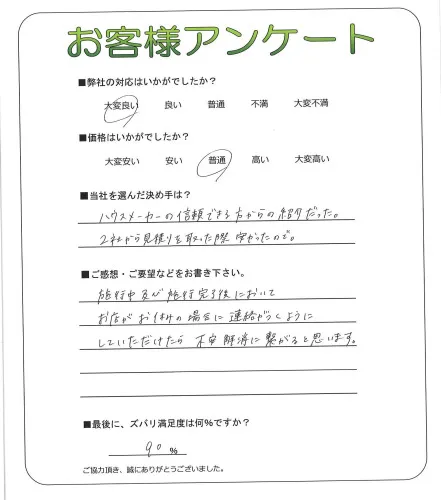 お客様アンケート
■弊社の対応はいかがでしたか?
大変良い 良い 普通 不満 大変不満
■価格はいかがでしたか?
大変安い 安い 普通 高い 大変高い
■当社を選んだ決め手は?
ハウスメーカーの信頼できる方からの紹介だった。
2社から見積りを取った際安かったので。
■ご感想・ご要望などをお書き下さい。
施行中及び施行完了後において
お店がお休みの場合に連絡がつくように
していただけたら不安解消に繋がると思います。
■最後に、ズバリ満足度は何%ですか?
90 %
ご協力頂き、誠にありがとうございました。